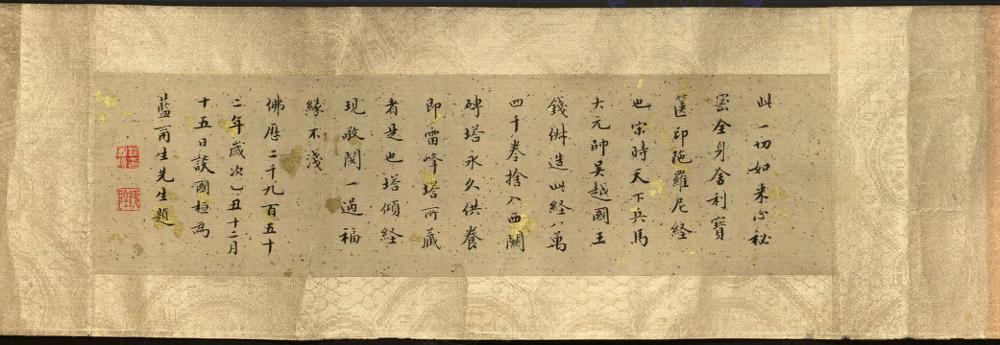 此一切如来心秘
密全身舍利寶
篋印陁羅尼経
也宗時天下兵馬
大元帥吴越國王
錢俶造此経八萬
四千卷捨入西關
磚塔永久供養
即雷峰塔所藏
者是也塔傾経
現敬閱一過福
緣不淺
佛歷二千九百五十
二年歲次乙丑十二月
十五日談國桓為
藍爾生先生題